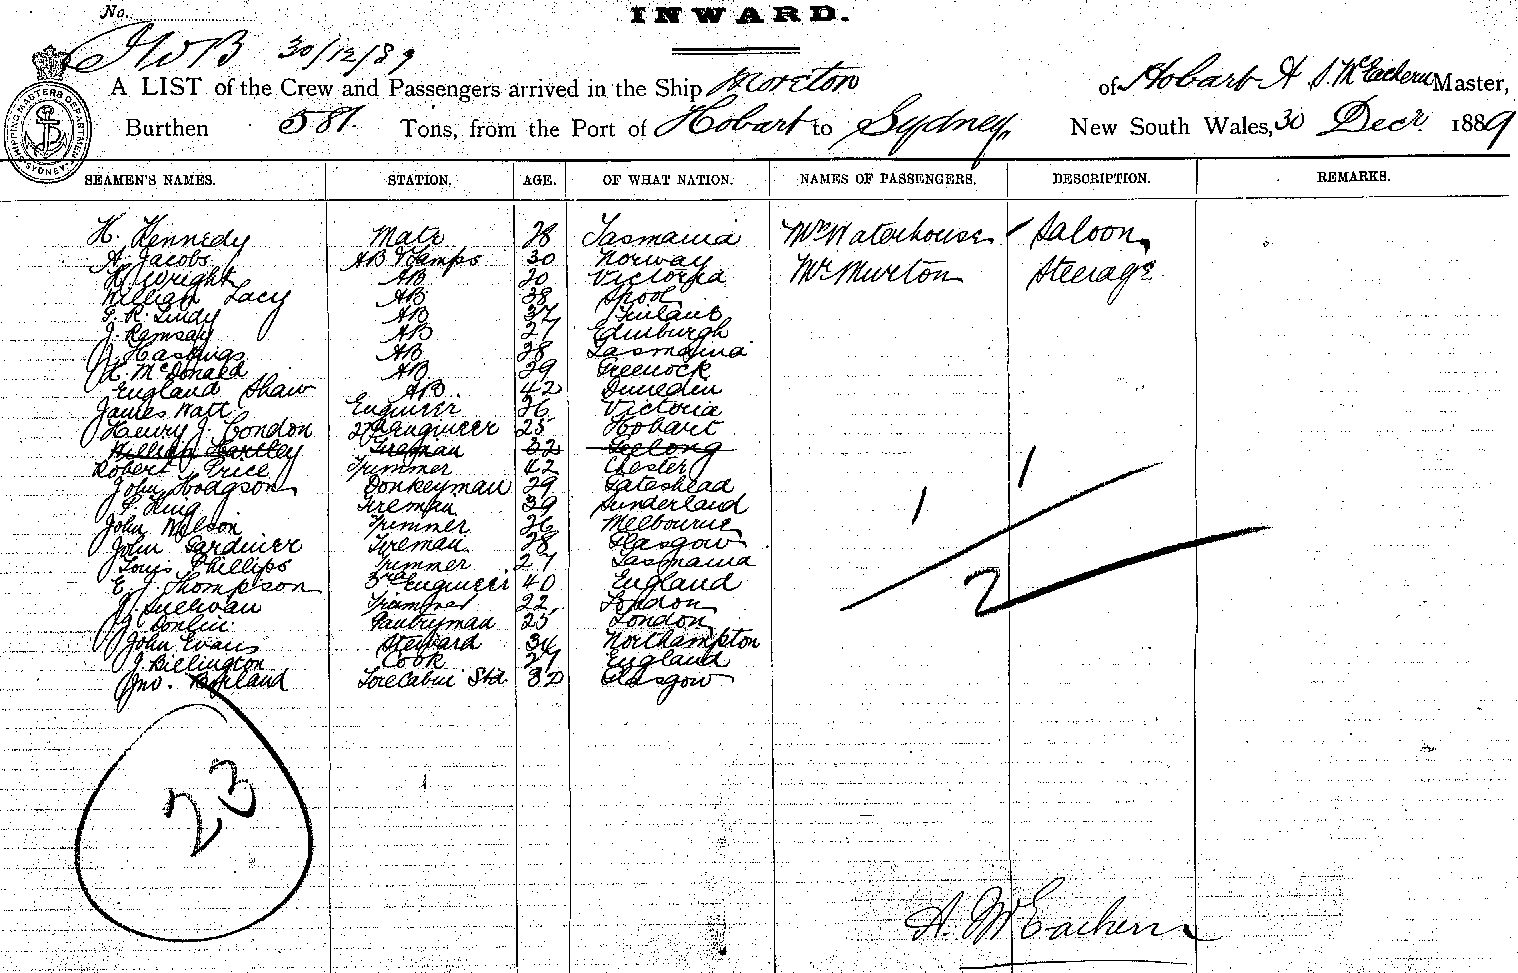 No.
INWARD.
JWB 30/12/89
A LIST of the Crew and Passengers arrived in the Ship Moreton of Hobart A S. McEachern Master,
Burthen 581 Tons, from the Port of Hobart to Sydney, New South Wales, 30 Decr 1889
SHIPPING MASTERS DEPARTMENT SYDNEY
SEAMEN'S NAMES. STATION. AGE. OF WHAT NATION. NAMES OF PASSENGERS. DESCRIPTION. REMARKS.
H. Kennedy Mate 28 Tasmania Mr Waterhouse Saloon
A. Jacobs AB & Lamps 30 Norway
H. Wright AB 20 Victoria Mr Murton Steerage
William Lacy AB 38
G. R. Lindy AB 37
J. Ramsay AB 27 Edinburgh
J. Hastings AB 28 Tasmania
H. McDonald AB 29 Greenock
England Shaw AB 42 Dunedin
James Watt Engineer 26 Victoria
Henry J. Condon 2nd Engineer 25 Hobart
William Hartley Fireman 32 Geelong
Robert Price Trimmer 42 Chester
John Hodgson Donkeyman 29 Gateshead
P. King Fireman 39 Sunderland
John Nelson Trimmer 26 Melbourne
John Gardiner Fireman 28 Glasgow
Louis Phillips Trimmer 27 Tasmania
E. J. Thompson 3rd Engineer 40 England
J. Sullivan Trimmer 22 London
J. Donlin Pantryman 25 London
John Evans Steward 34 Northampton
J. Billington Cook 27 England
Jno. Borland Forecabin Std 32 Glasgow
1 1
2
23
A. McEachern